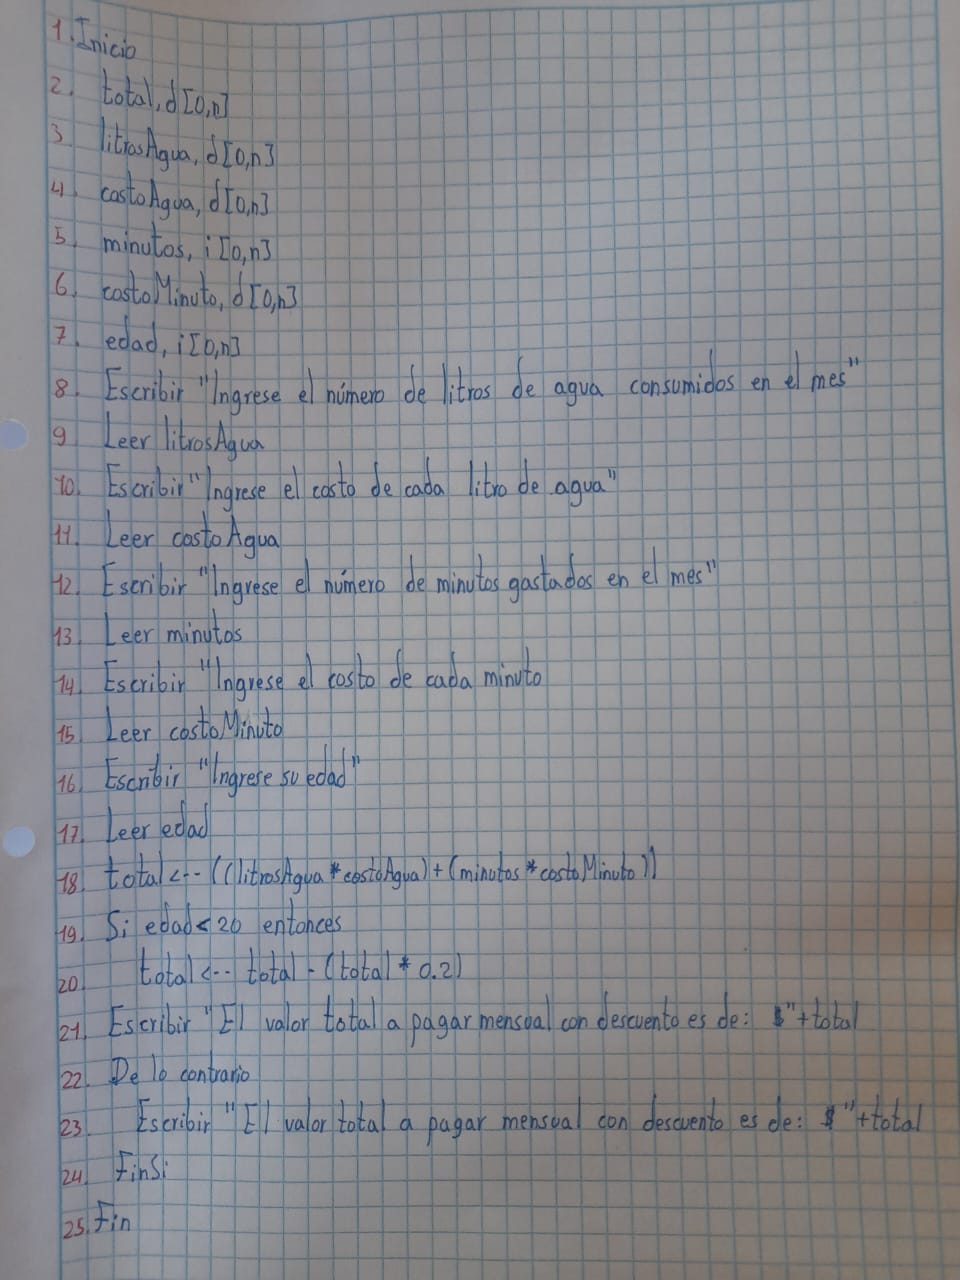 1. Inicio
2. total, d[0,n]
3 litrosAgua, d[0,n]
4. costoAgua, d[0,n]
5. minutos, i[0,n]
6. costoMinuto, d[0,n]
7. edad, i[0,n]
8. Escribir "Ingrese el número de litros de agua consumidos en el mes"
9 Leer litrosAgua
10. Escribir "Ingrese el costo de cada litro de agua"
11. Leer costoAgua
12. Escribir "Ingrese el número de minutos gastados en el mes"
13. Leer minutos
14. Escribir "Ingrese el costo de cada minuto
15. Leer costoMinuto
16. Escribir "Ingrese su edad"
17. Leer edad
18. total <-- ((litrosAgua * costoAgua) + (minutos * costoMinuto))
19. Si edad < 20 entonces
20. total <-- total - (total * 0.2)
21. Escribir "El valor total a pagar mensual con descuento es de: $" + total
22. De lo contrario
23 Escribir "El valor total a pagar mensual con descuento es de: $" + total
24. FinSi
25. Fin